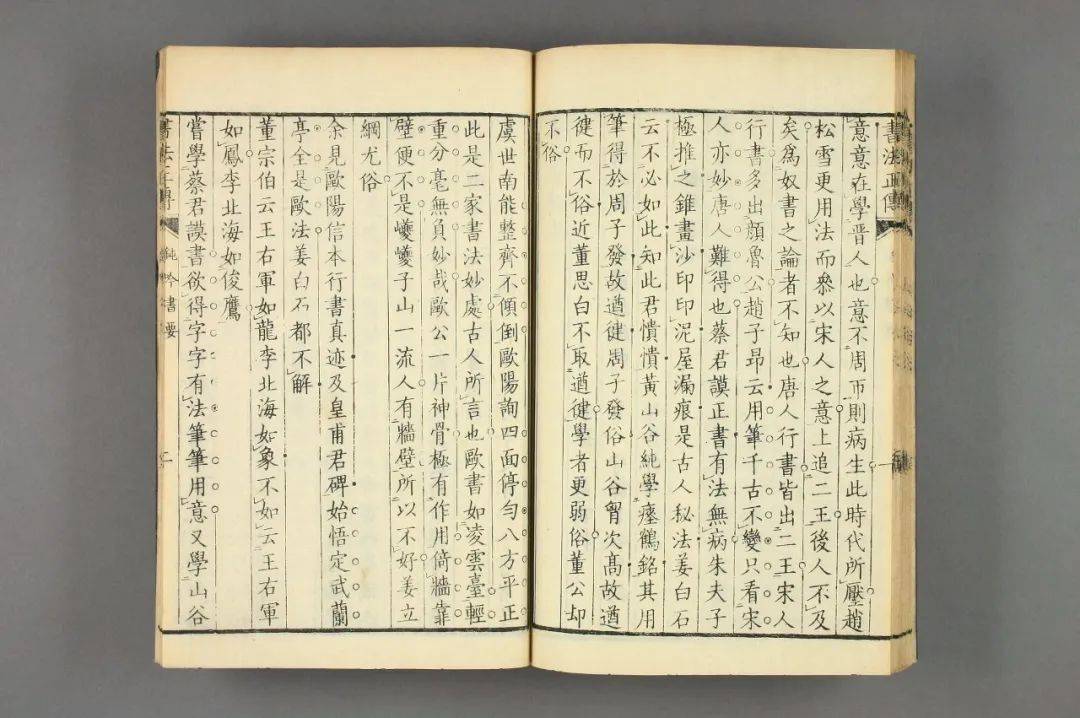 書法正傳
意意在學晉人也意不周帀則病生此時代所壓趙
松雪更用法而叅以宋人之意上追二王後人不及
矣爲奴書之論者不知也唐人行書皆出二王宋人
行書多出顏魯公趙子昂云用筆千古不變只看宋
人亦妙唐人難得也蔡君謨正書有法無病朱夫子
極推之錐畫沙印印泥屋漏痕是古人秘法姜白石
云不必如此知此君憒憒黃山谷純學瘞鶴銘其用
筆得於周子發故遒健周子發俗山谷胷次高故遒
健而不俗近董思白不取遒健學者更弱俗董公却
不俗
虞世南能整齊不傾倒歐陽詢四面停勻八方平正
此是二家書法妙處古人所言也歐書如凌雲臺輕
重分毫無負妙哉歐公一片神骨極有作用倚牆靠
壁便不是夔夔子山一流人有牆壁所以不好姜立
綱尤俗
余見歐陽信本行書真迹及皇甫君碑始悟定武蘭
亭全是歐法姜白石都不解
董宗伯云王右軍如龍李北海如象不如云王右軍
如鳳李北海如俊鷹
嘗學蔡君謨書欲得字字有法筆筆用意又學山谷
鈍吟書要